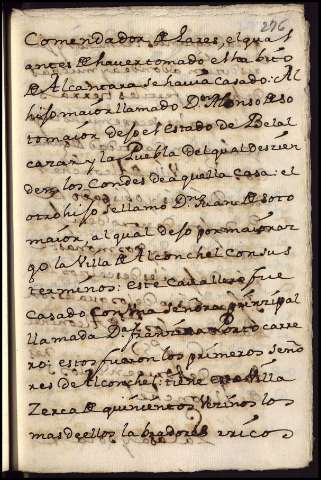 276
Comendador de Lares, el qual
antes de haver tomado el habito
de Alcantara se havia casado: Al
hijo maior llamado Dn Alonso de so
tomaior dejo el Estado de Belal
cazar y la Puebla del qual deszien
den los Condes de aquella casa: el
otro hijo se llamo Dn Juan de soto
maior, al qual dejo por maioraz
go la Villa de Alconchel con sus
terminos: este cavallero fue
casado con una señora prinzipal
llamada Da franca Portocarre
ro: estos fueron los primeros seño
res de Alconchel: tiene esta Villa
Zerca de quinientos Vezinos los
mas de ellos labradores rricos